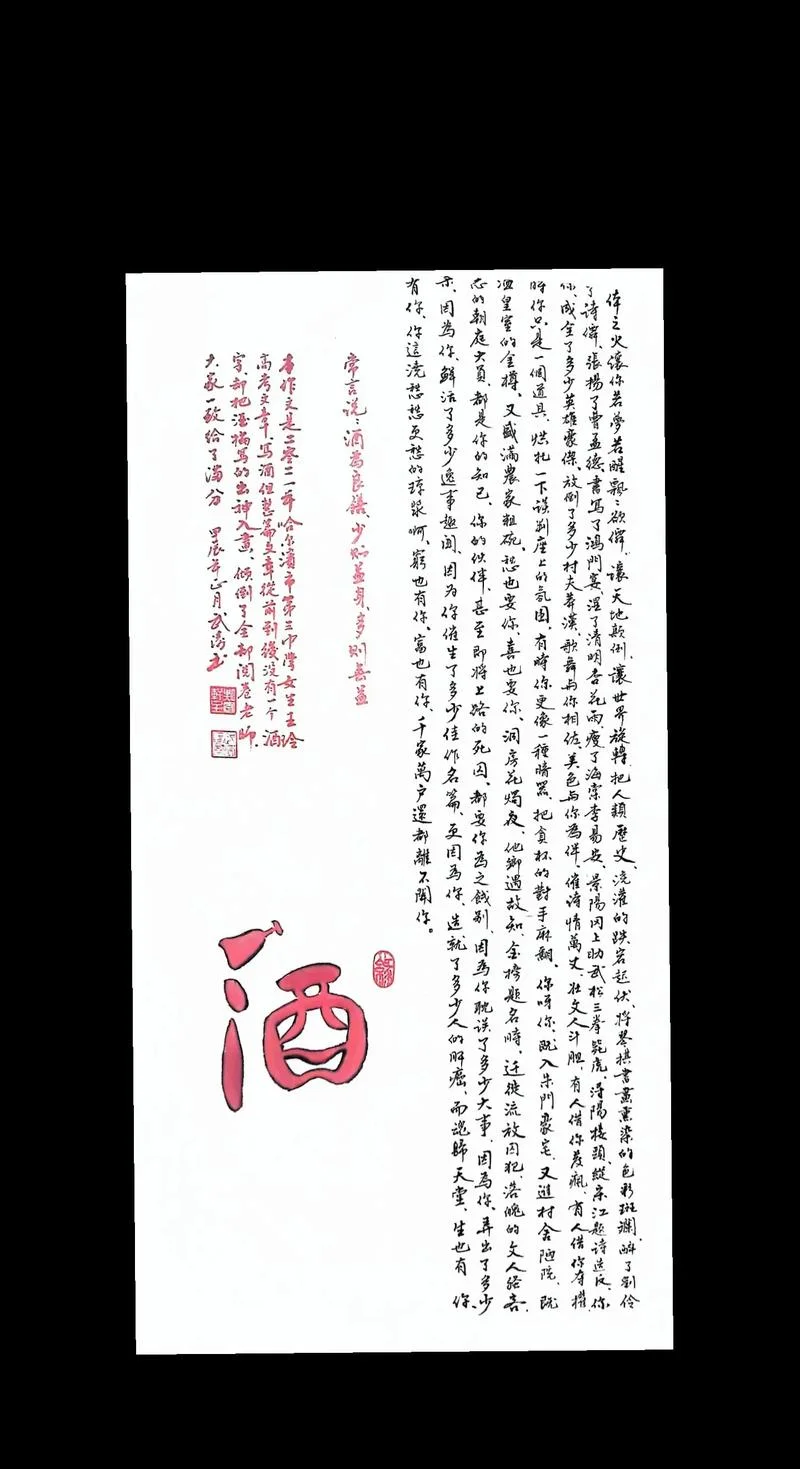 倖之火讓你若夢若醒飄〻欲僊、讓天地顛倒、讓世界旋轉、把人類歷史、澆灌的跌宕起伏、將琴棋書畫熏染的色彩斑斕、醉了劉伶
了詩僊、張揚了曹孟德、書寫了鴻門宴、濕了清明杏花雨、瘦了海棠李易安、景陽岡上助武松三拳斃虎、潯陽樓頭、縱宋江題詩造反、你
你、成全了多少英雄豪傑、放倒了多少村夫莽漢、歌舞與你相佐、美色與你為伴、催詩情萬丈、壯文人斗胆、有人借你發瘋、有人借你奪權、
時你只是一個道具、烘托一下談判座上的氛围、有時你更像一種暗器、把貪杯的對手麻翻、你呀你、既入朱門豪宅、又進村舍陋院、既
洄皇室的金樽、又盛滿農家粗碗、愁也要你、喜也要你、洞房花燭夜、他鄉遇故知、金榜題名時、迁徙流放囚犯、落魄的文人騷客、
志的朝庭大員、都是你的知己、你的伙伴、甚至即將上路的死囚、都要你為之餞別、因為你耽誤了多少大事、因為你、弄出了多少
示、因為你、鮮活了多少逸事趣闻、因为你催生了多少佳作名篇、更因為你、造就了多少人的肝癌、而魂歸天堂、生也有你、
有你、你這澆愁愁更愁的琼漿啊、窮也有你、富也有你、千家萬户還都離不開你。
常言说：酒為良饌、少则益身、多则無益
本作文是二零二一年哈尔濱市第三中學女生王玲
高考文章、写酒但整篇文章從前到後没有一个酒
字、却把酒描写的出神入畫、傾倒了全部閲卷老師、
大家一致给了满分　甲辰年正月武涛書
酒